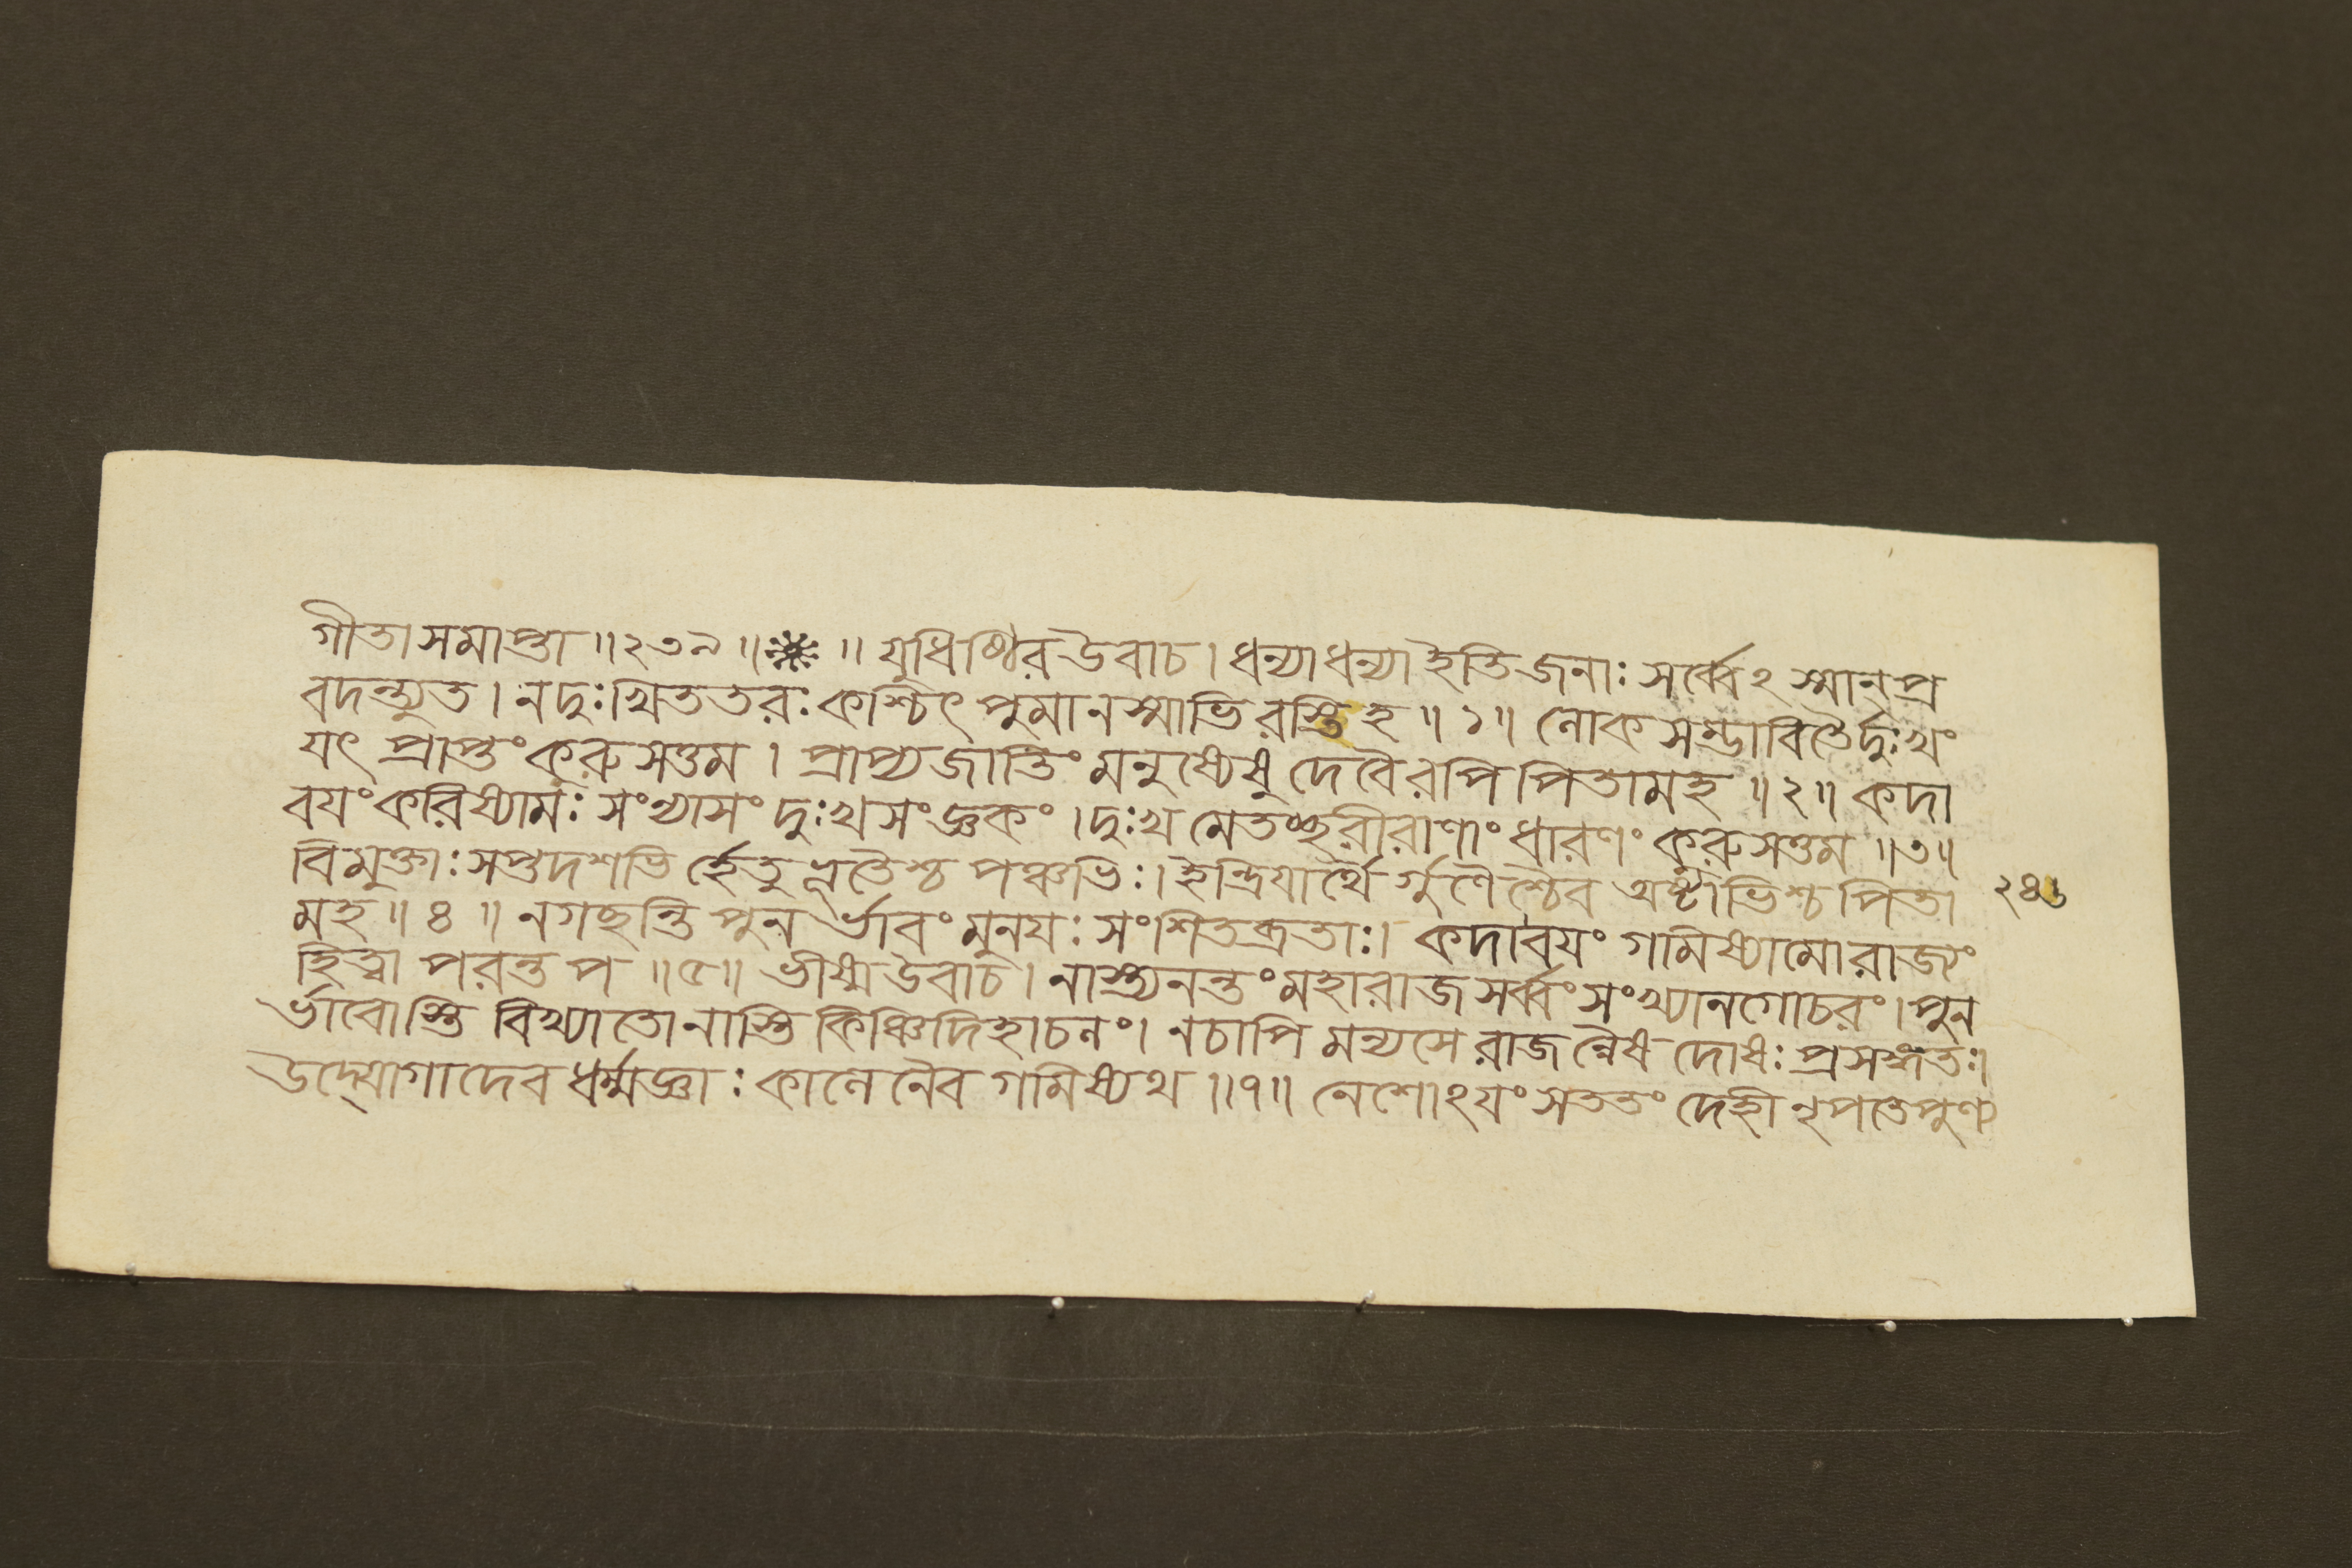 গীতাসমাপ্তা॥২৩৯॥❋॥যুধিষ্ঠিরউবাচ।ধন্যাধন্যাইতিজনাঃসর্ব্বেঽস্মান্প্র
বদন্ত্যুত।নদুঃখিততরঃকশ্চিৎপুমানস্মাভিরস্তিহ॥১॥লোকসম্ভাবিতৈর্দুঃখং
যৎপ্রাপ্তংকুরুসত্তম।প্রাপ্যজাতিংমনুষ্যেষুদেবৈরপিপিতামহ॥২॥কদা
বযংকরিষ্যামঃসংন্যাসংদুঃখসংজ্ঞকং।দুঃখমেতচ্ছরীরাণাংধারণংকুরুসত্তম॥৩॥
বিমুক্তাঃসপ্তদশভির্হেতুভূতৈশ্চপঞ্চভিঃ।ইন্দ্রিযার্থৈর্গুণৈশ্চৈবঅষ্টাভিশ্চপিতা
মহ॥৪॥নগছন্তিপুনর্ভাবংমুনযঃসংশিতব্রতাঃ।কদাবযংগমিষ্যামোরাজ্যং
হিত্বাপরন্তপ॥৫॥ভীষ্মউবাচ।নাস্ত্যনন্তংমহারাজসর্ব্বংসংখ্যানগোচরং।পুন
র্ভাবোস্তিবিখ্যাতোনাস্তিকিঞ্চিদিহাচলং।নচাপিমন্যসেরাজন্নৈষদোষঃপ্রসঙ্গতঃ।
উদ্যোগাদেবধর্ম্মজ্ঞাঃকালেনৈবগমিষ্যথ॥৭॥নেশোঽযংসততংদেহীনৃপতেপুণ্য
২৪৬